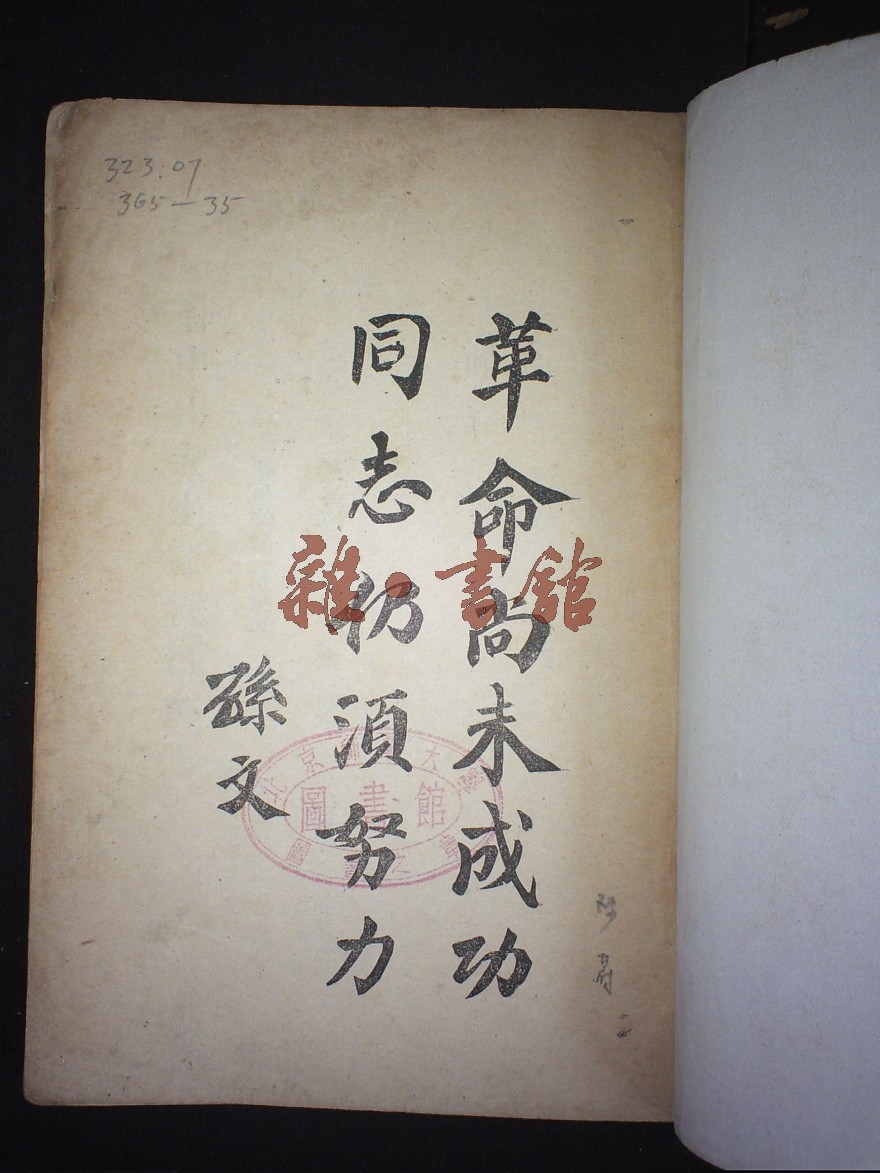 323.07
365—35
革命尚未成功
同志仍須努力
孫文
雜·書館
圖書館